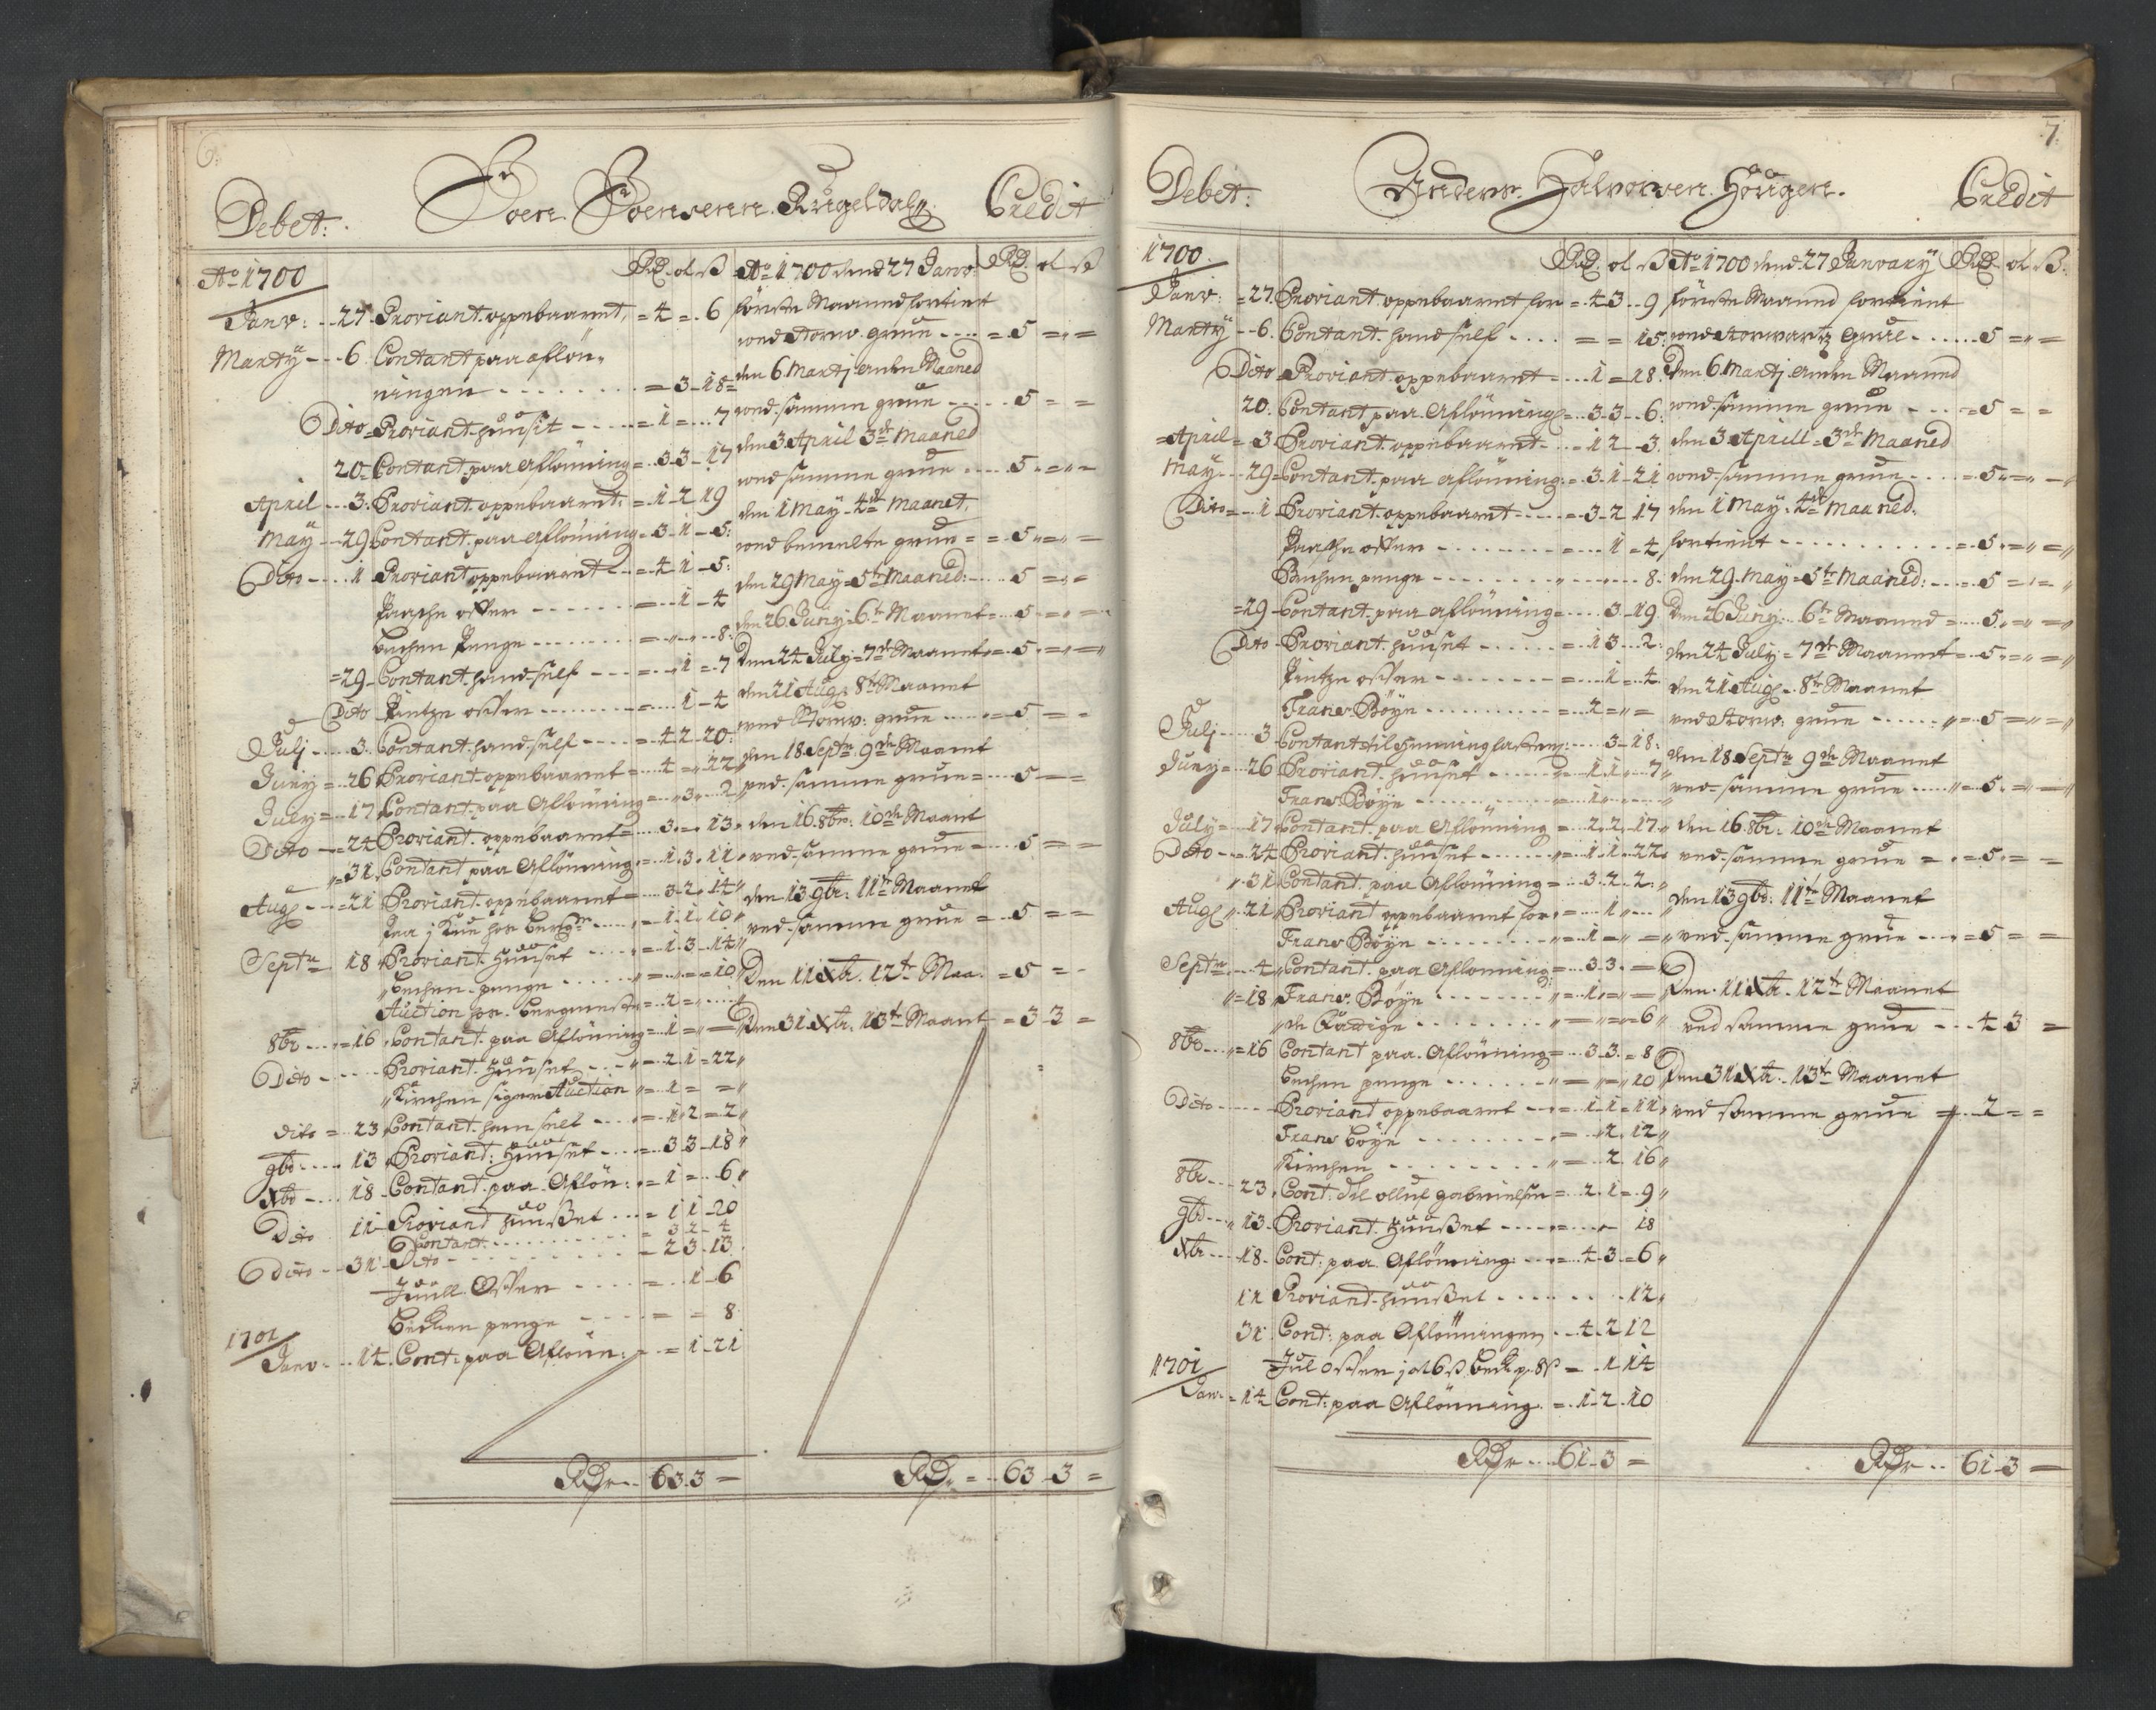 6.
Debet: Joen Joensenn Rugeldaly Credit
Ao 1700 Rd. ol ß
Janv: 27 Proviant oppebaaret 4 = 6
Marty 6 Contant paa aflön
ningen 3 18
Dito Proviant huusit 1 = 7
20 Contant paa Aflönning 3 3 17
April 3 Proviant oppebaaret 1 2 19
May 29 Contant paa Aflönning 3 1 5
Dito 1 Proviant oppebaaret 4 1 5
Paasche offer 1 4
buchen Penge 8
29 Contant hand self 1 = 7
Dito Pintze offer 1 4
Julj 3 Contant hand self 4 2 20
Juny 26 Proviant oppebaaret 4 = 22
July 17 Contant paa Aflönning 3 2
Dito 24 Proviant oppebaaret 3 = 13
31 Contant paa Aflönning 1 3 11
Aug 21 Proviant oppebaaret 3 2 14
1 1 10
Septr 18 Proviant Huuset 1 3 14
buchen penge 10
Auction 2
8br 16 Contant paa Aflönning 1
Dito Proviant Huuset 2 1 22
Kirchen Auction 1
dito 23 Contant ham self 1 2 2
9br 13 Proviant Huuset 3 3 18
Xbr 18 Contant paa Aflön: 1 = 6
Dito 11 Proviand huußet 1 1 20
Contant 3 2 4
Dito 31 Dito 2 3 13
Juull Offer 1 6
becken penge 8
1701
Janv 14 Cont: paa Aflönn: 1 21
Rdr 63 3
Ao 1700 dend 27 Janv: Rd. ol ß
förste Maaned fortient
ved Storw. grue 5
den 6 Martj anden Maaned
ved samme grue 5
den 3 April 3de Maaned
ved samme grue 5
den 1 May 4de Maanet
ved bemelte grue 5
den 29 May 5te Maaned 5
den 26 Juny 6te Maanet 5
Den 24 July 7de Maanet 5
den 21 Aug 8te Maanet
ved Storw: grue 5
den 18 Septr 9de Maanet
ved samme grue 5
den 16 8br: 10de Maanet
ved samme grue 5
den 13 9br: 11te Maanet
ved samme grue 5
Den 11 Xbr. 12te Maa. 5
Den 31 Xbr. 13te Maanet 3 3
Rdr 63 3
7.
Debet: Anders Halvorsen Hougen. Credit
1700 Rd. ol ß
Janv: 27 Proviant oppebaaret for 4 3 9
Marty 6 Contant hand self 15
Dito Proviant oppebaaret 1 = 18
20 Contant paa Aflönning 3 3 6
April 3 Proviant oppebaaret 1 2 3
May 29 Contant paa Aflönning 3 1 21
Dito 1 Proviant oppebaaret 3 2 17
Paasche offer 1 4
Buchen penge 8
29 Contant paa Aflönning 3 19
Dito Proviant huuset 1 3 2
Pintze offer 1 4
Frans Böye 2
Julj 3 Contant til 3 18
Juny 26 Proviant huuset 1 1 7
Frans Böye 1
July 17 Contant paa Aflönning 2 2 17
Dito 24 Proviant huuset 1 1 22
31 Contant paa Aflönning 3 2 2
Aug 21 Proviant oppebaaret for 1
Frans Böye 1
Septr 4 Contant paa Aflönning 3 3
18 Frans Böye 1
de fattige 6
8br 16 Contant paa Aflönning 3 3 8
buchen penge 10
Dito Proviant oppebaaret 1 1 11
Frans böye 2 12
Kirchen 2 16
8br 23 Cont: til olluf gabrielsen 2 1 9
9br 13 Proviant Huußet 18
Xbr 18 Cont: paa Aflönning 4 3 6
11 Proviand huußet 12
31 Cont: paa Aflönningen 4 2 12
1701 Jul offer 1 ol 6 ß beck p. 8 ß 1 14
Janv 14 Cont: paa Aflönning 1 2 10
Rdr 61 3
Ao 1700 dend 27 January Rd. ol ß
förste Maaned fortient
ved Storwartz grue 5
Den 6 Martj anden Maaned
ved samme grue 5
den 3 Aprill 3de Maaned
ved samme grue 5
den 1 May 4de Maaned
fortient 5
den 29 May 5te Maaned 5
Den 26 Juny 6te Maaned 5
den 24 July 7de Maanet 5
den 21 Aug 8te Maanet
ved Storw. grue 5
den 18 Septr 9de Maanet
ved samme grue 5
den 16 8br: 10de Maanet
ved samme grue 5
den 13 9br: 11te Maanet
ved samme grue 5
Den 11 Xbr. 12te Maanet
ved samme grue 4 3
Den 31 Xbr. 13te Maanet
ved samme grue 2
Rdr 61 3